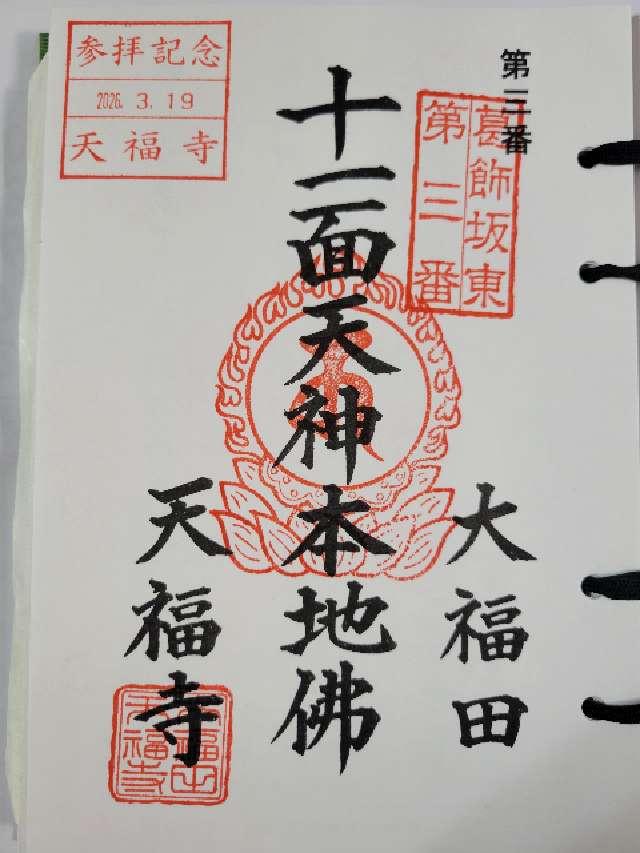 第三番
葛飾坂東
第三番
大福田
十一面天神本地佛
天福寺
参拝記念
2026. 3. 19
天福寺